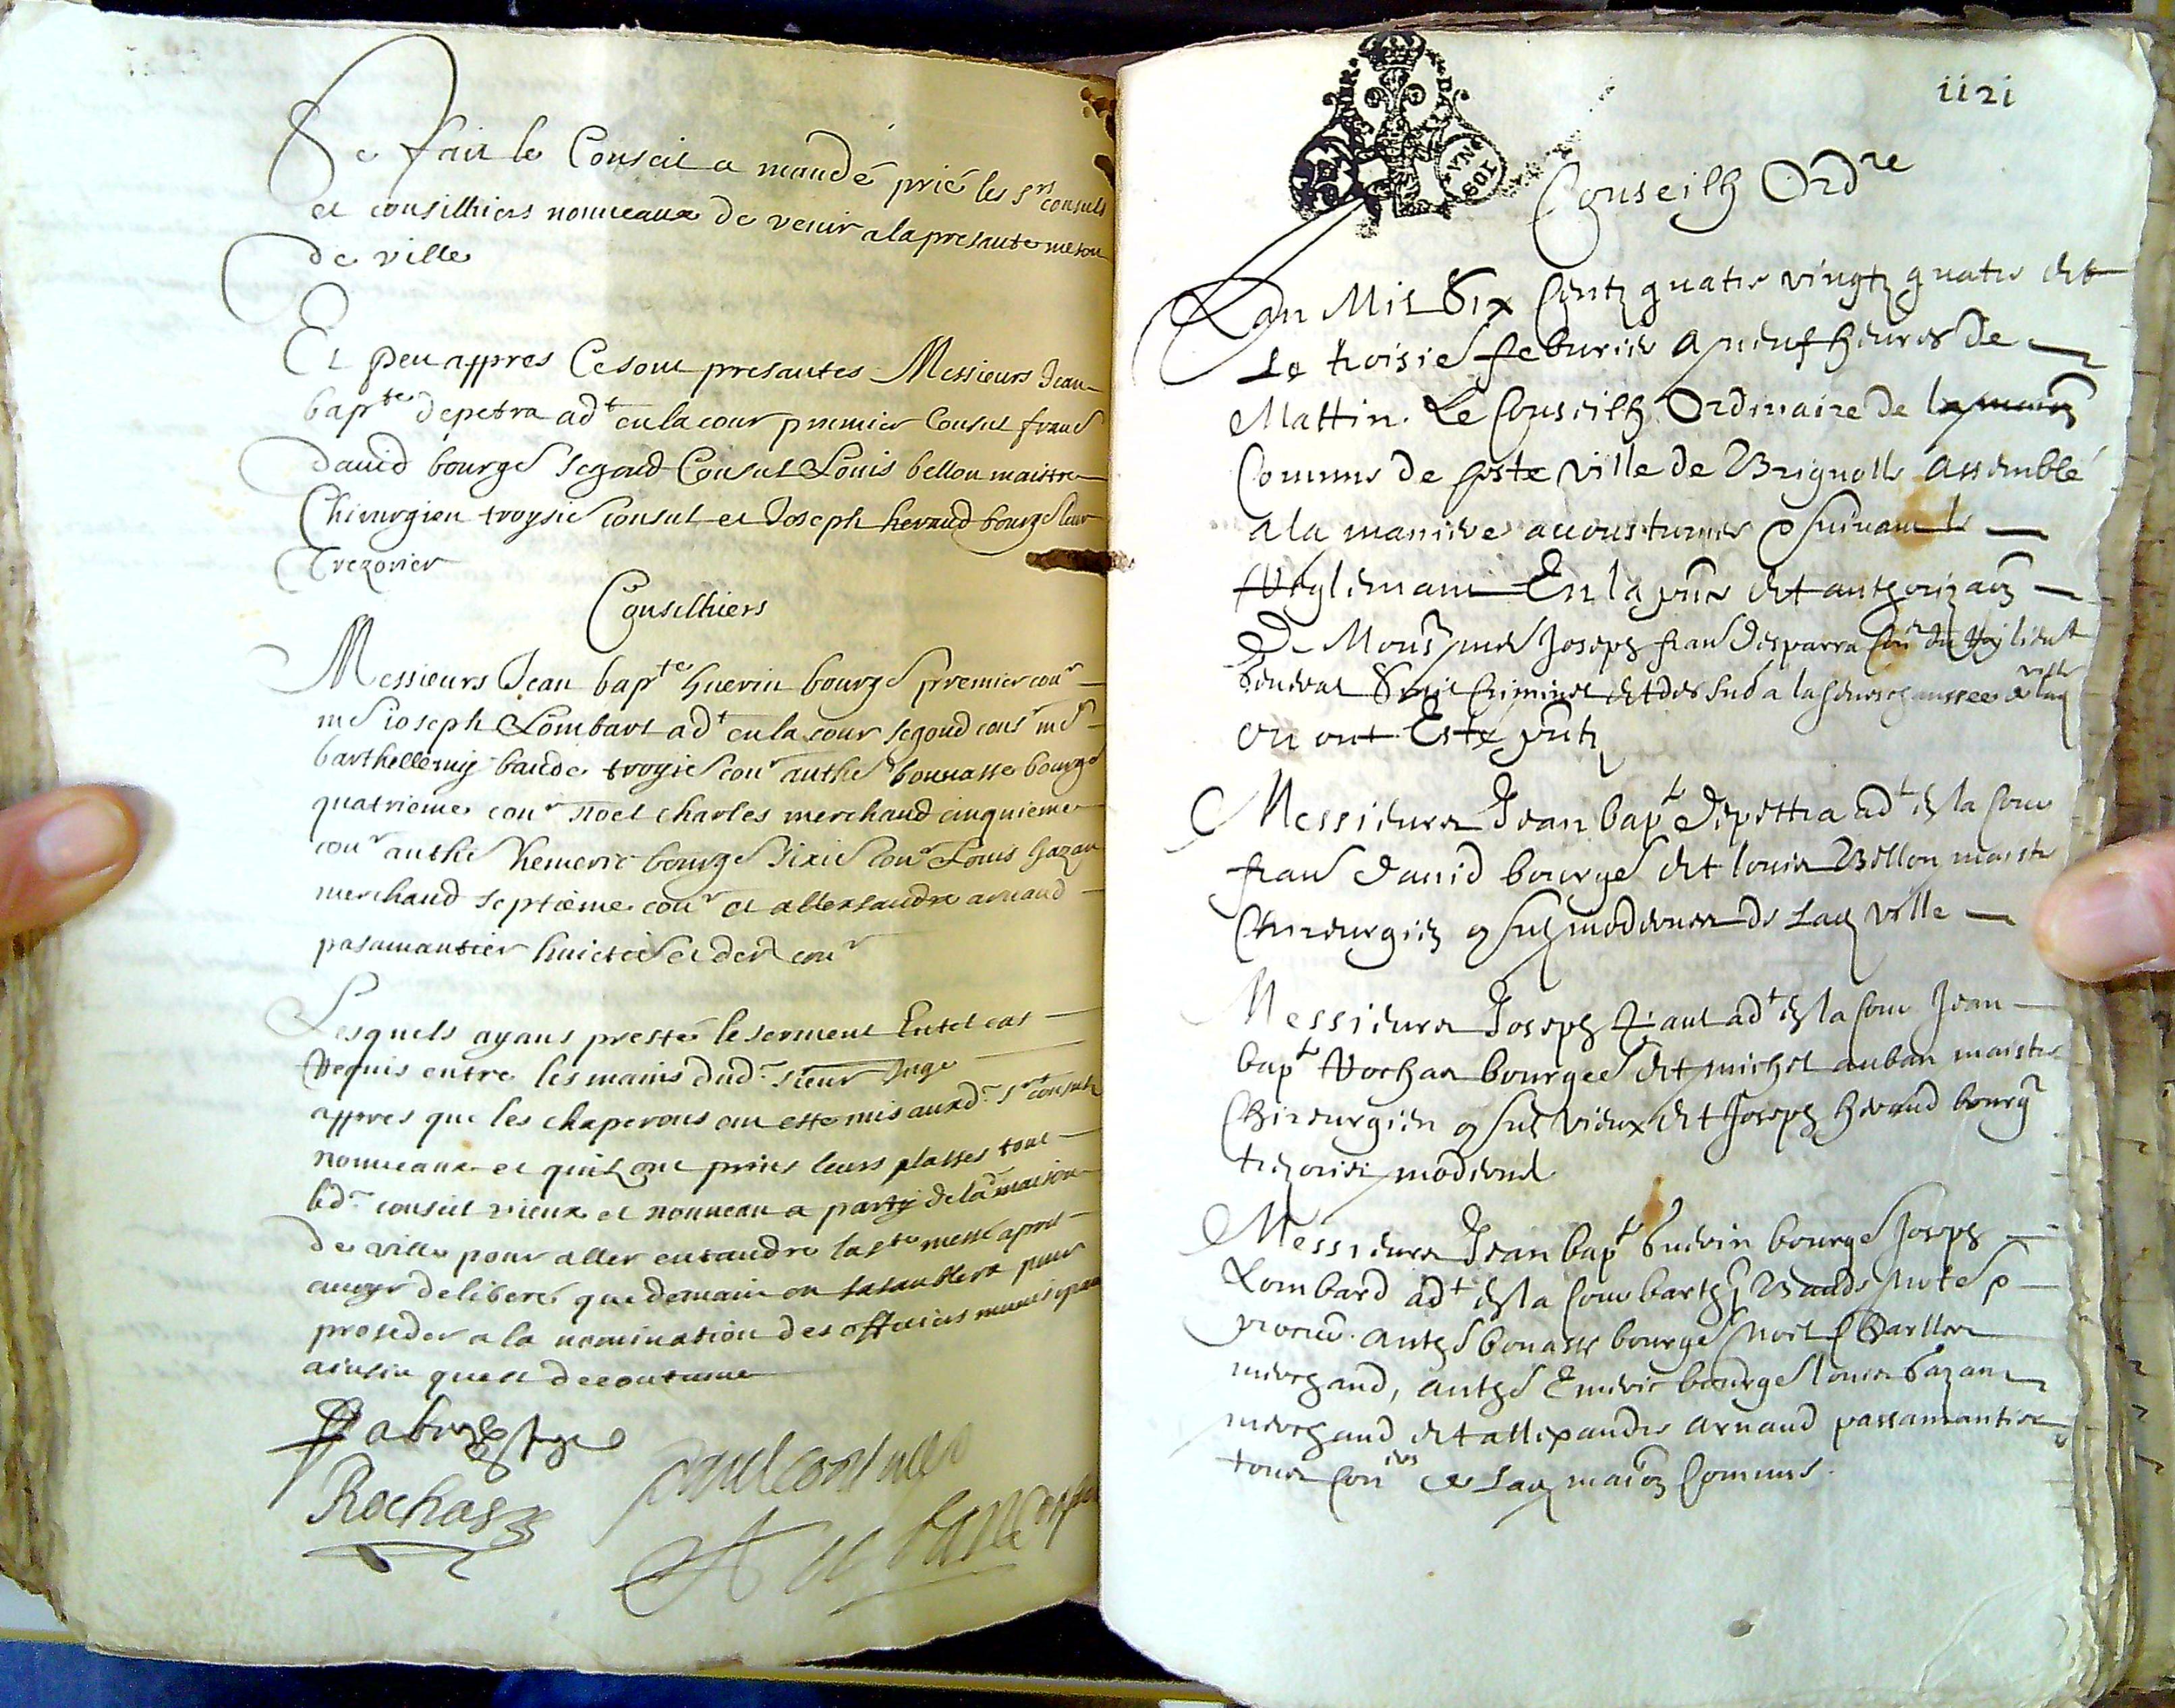 Ce fait le Conseil a mandé prié les srs consuls
et consilhiers nouveaux de venir a la presante meson
de ville
Et peu appres Ce sont presantes Messieurs Jean
bapte depetra adt en la cour premier Consul frans
david bourgs segond Consul Louis bellon maistre
Chirurgien troysie consul et Joseph heraud bourgs leur
Trezorier
Consilhiers
Messieurs Jean bapte guerin bourgs premier conr
me ioseph Lombart adt en la cour segond consr me
barthellemy baude troysie conr anthe bonnasse bourgs
quatrieme conr noel charles merchand cinquieme
conr anthe hemeric bourgs sixie conr Louis gazan
merchand septieme conr et allexsandre arnaud
pasamantier huictie et der conr
Lesquels ayans presté le serment Entel cas
Requis entre les mains dud. sieur Juge
appres que les chaperons ont esté mis auxd. srs consuls
nouveaux et quil ont prins leurs plasses tout
led. conseil vieux et nouveau a party de la maison
de ville pour aller entandre la ste messe apres
avoyr deliberé que demain on sasanblera pour
proseder a la nomination des officiers municipaux
ainsin quest de coutume
Rochas
paul consul
Auban consul
1121
Conseilh Ordre
Lan Mil Six Centz quatre vingtz quatre et
Le troisie feburier a neuf heures de
Mattin. Le Conseilh Ordinaire de la maison
Comune de ceste ville de Brignolle assemblé
a la maniere accoustumee & suivant le
Reglemant En la pnce et authorizaon
De Monsr me Joseph frans desparra conr du Roy lieut
general Criminel en la seneschaussee de lad ville
On ont Esté pntz
Messieurs Jean bapt depettra adt en la Cour
frans david bourges et louis Bellon maistre
Chirurgien consulz modernes de lad ville
Messieurs Joseph Paul adt en la Cour Jean
bapt Rochas bourges et michel auban maistre
Chirurgien consulz vieux et Joseph heraud bourgs
trezorier moderne
Messieurs Jean bapt Guerin bourges Joseph
Lombard adt en la Cour barthy Baude note &
procur. anthe bonasse bourges Noel Charlles
merchand, anthe Emeric bourges louis Gazan
merchand et allexandre arnaud passamantier
tous Coners de lad maison Comune.